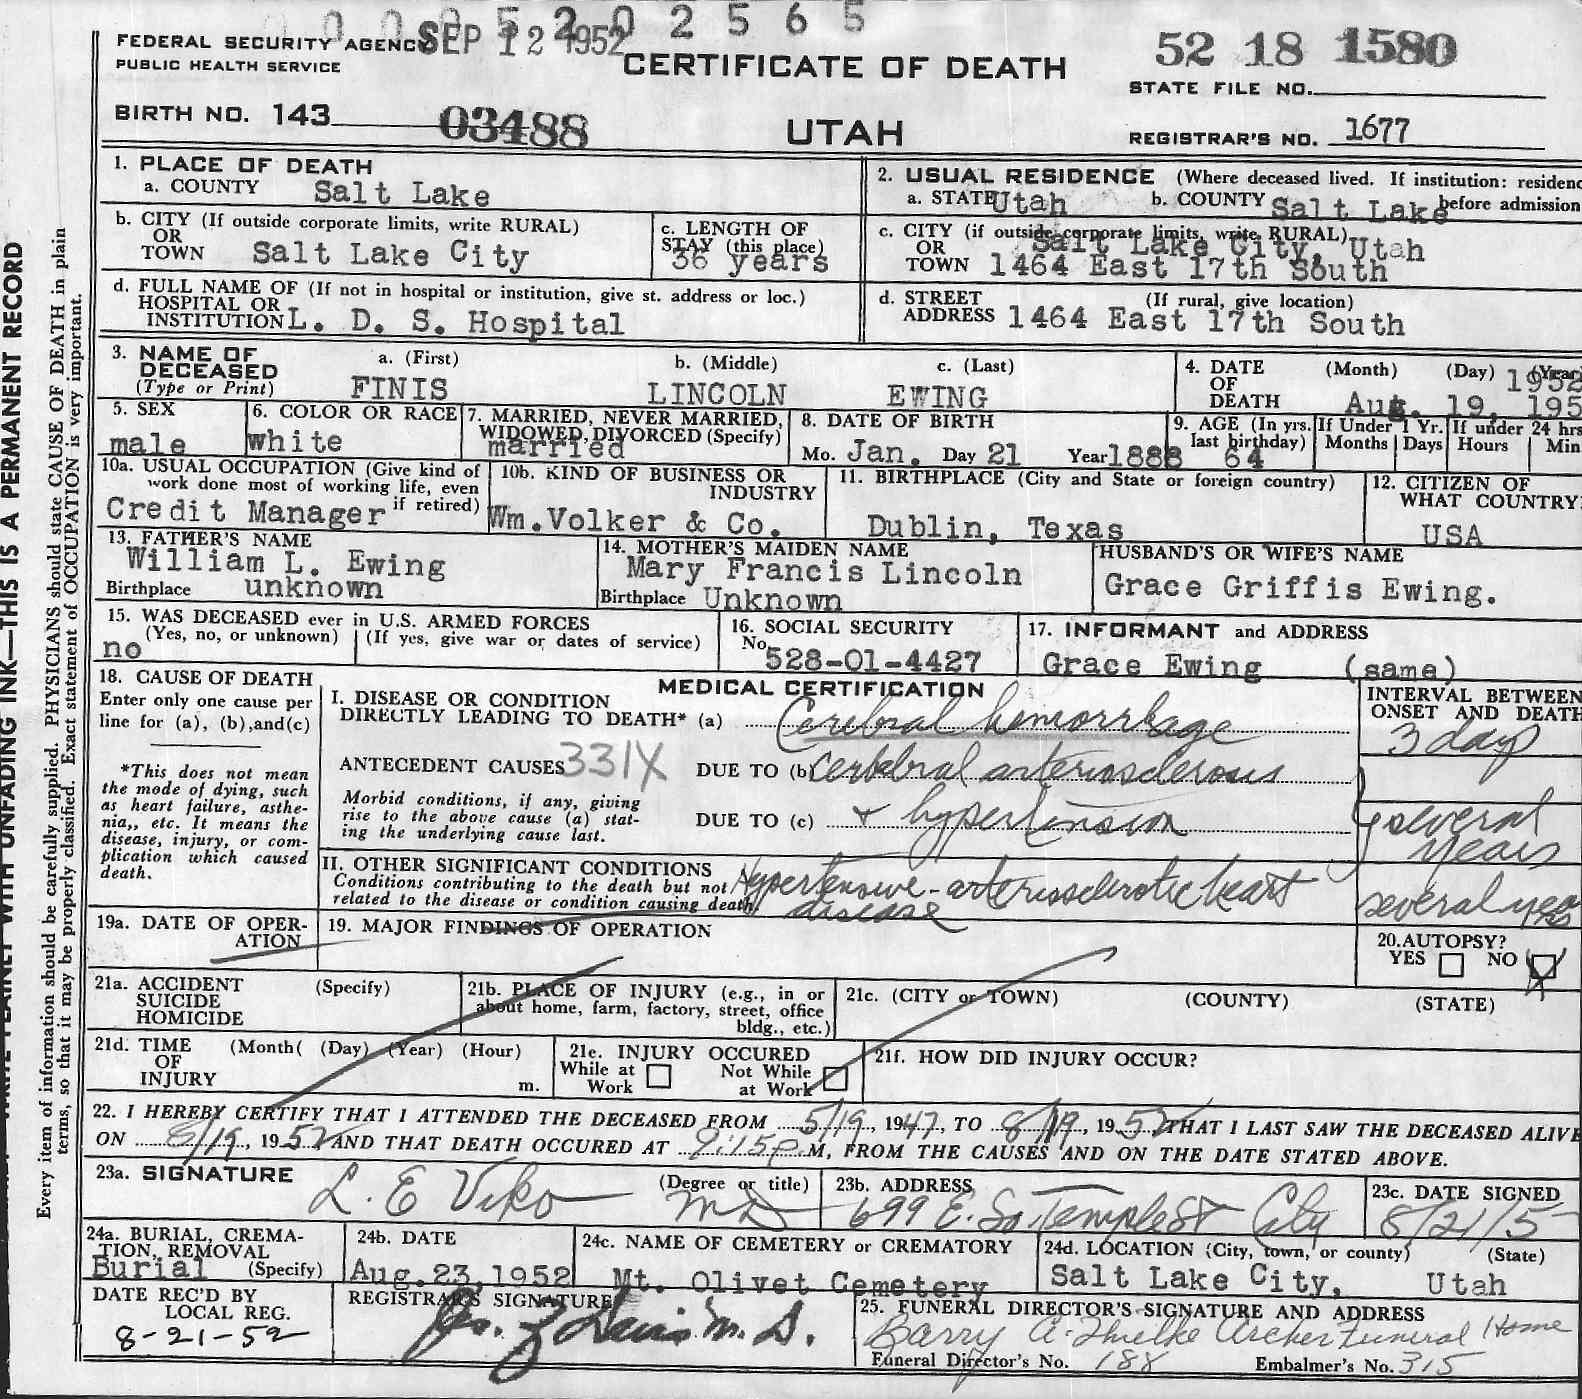 0 0 0 5 2 0 2 5 6 5
SEP 12 1952
FEDERAL SECURITY AGENCY
PUBLIC HEALTH SERVICE
CERTIFICATE OF DEATH
52 18 1580
STATE FILE NO.
BIRTH NO. 143 03488
UTAH
REGISTRAR'S NO. 1677
1. PLACE OF DEATH
a. COUNTY Salt Lake
2. USUAL RESIDENCE (Where deceased lived. If institution: residenc
before admission
a. STATE Utah b. COUNTY Salt Lake
b. CITY (If outside corporate limits, write RURAL)
OR
TOWN Salt Lake City
c. LENGTH OF
STAY (this place)
36 years
c. CITY (if outside corporate limits, write RURAL)
OR
TOWN
Salt Lake City, Utah
1464 East 17th South
d. FULL NAME OF (If not in hospital or institution, give st. address or loc.)
HOSPITAL OR
INSTITUTION L. D. S. Hospital
d. STREET (If rural, give location)
ADDRESS 1464 East 17th South
3. NAME OF
DECEASED
(Type or Print)
a. (First) b. (Middle) c. (Last)
FINIS LINCOLN EWING
4. DATE (Month) (Day) (Year)
OF
DEATH
1952
Aug. 19, 195
5. SEX
male
6. COLOR OR RACE
white
7. MARRIED, NEVER MARRIED,
WIDOWED, DIVORCED (Specify)
married
8. DATE OF BIRTH
Mo. Jan. Day 21 Year 1888
9. AGE (In yrs.
last birthday)
64
If Under 1 Yr.
Months Days
If under 24 hrs
Hours Min
10a. USUAL OCCUPATION (Give kind of
work done most of working life, even
if retired)
Credit Manager
10b. KIND OF BUSINESS OR
INDUSTRY
Wm. Volker & Co.
11. BIRTHPLACE (City and State or foreign country)
Dublin, Texas
12. CITIZEN OF
WHAT COUNTRY?
USA
13. FATHER'S NAME
William L. Ewing
Birthplace unknown
14. MOTHER'S MAIDEN NAME
Mary Francis Lincoln
Birthplace Unknown
HUSBAND'S OR WIFE'S NAME
Grace Griffis Ewing.
15. WAS DECEASED ever in U.S. ARMED FORCES
(Yes, no, or unknown) (If yes, give war or dates of service)
no
16. SOCIAL SECURITY
No.
528-01-4427
17. INFORMANT and ADDRESS
Grace Ewing (same)
18. CAUSE OF DEATH
Enter only one cause per
line for (a), (b), and(c)
*This does not mean
the mode of dying, such
as heart failure, asthe-
nia,, etc. It means the
disease, injury, or com-
plication which caused
death.
MEDICAL CERTIFICATION
I. DISEASE OR CONDITION
DIRECTLY LEADING TO DEATH* (a) Cerebral hemorrhage
INTERVAL BETWEEN
ONSET AND DEATH
3 days
ANTECEDENT CAUSES 331X DUE TO (b) Cerebral arteriosclerosis
Morbid conditions, if any, giving
rise to the above cause (a) stat-
ing the underlying cause last.
DUE TO (c) + hypertension
several
years
II. OTHER SIGNIFICANT CONDITIONS
Conditions contributing to the death but not
related to the disease or condition causing death.
Hypertensive-arteriosclerotic heart
disease
several years
19a. DATE OF OPER-
ATION
19. MAJOR FINDINGS OF OPERATION
20. AUTOPSY?
YES NO
21a. ACCIDENT (Specify)
SUICIDE
HOMICIDE
21b. PLACE OF INJURY (e.g., in or
about home, farm, factory, street, office
bldg., etc.)
21c. (CITY or TOWN) (COUNTY) (STATE)
21d. TIME (Month( (Day) (Year) (Hour)
OF
INJURY m.
21e. INJURY OCCURED
While at Not While
Work at Work
21f. HOW DID INJURY OCCUR?
22. I HEREBY CERTIFY THAT I ATTENDED THE DECEASED FROM 5/19, 1947, TO 8/19, 1952 THAT I LAST SAW THE DECEASED ALIVE
ON 8/19, 1952 AND THAT DEATH OCCURED AT 9:15 p.M, FROM THE CAUSES AND ON THE DATE STATED ABOVE.
23a. SIGNATURE (Degree or title)
L. E Viko MD
23b. ADDRESS
699 E. So. Temple St City
23c. DATE SIGNED
8/21/5
24a. BURIAL, CREMA-
TION, REMOVAL
(Specify)
Burial
24b. DATE
Aug. 23, 1952
24c. NAME OF CEMETERY or CREMATORY
Mt. Olivet Cemetery
24d. LOCATION (City, town, or county) (State)
Salt Lake City, Utah
DATE REC'D BY
LOCAL REG.
8-21-52
REGISTRAR'S SIGNATURE
M. D.
25. FUNERAL DIRECTOR'S SIGNATURE AND ADDRESS
Barry A. Thielke Archer Funeral Home
Funeral Director's No. 188 Embalmer's No. 315
WRITE PLAINLY WITH UNFADING INK—THIS IS A PERMANENT RECORD
Every item of information should be carefully supplied. PHYSICIANS should state CAUSE OF DEATH in plain
terms, so that it may be properly classified. Exact statement of OCCUPATION is very important.